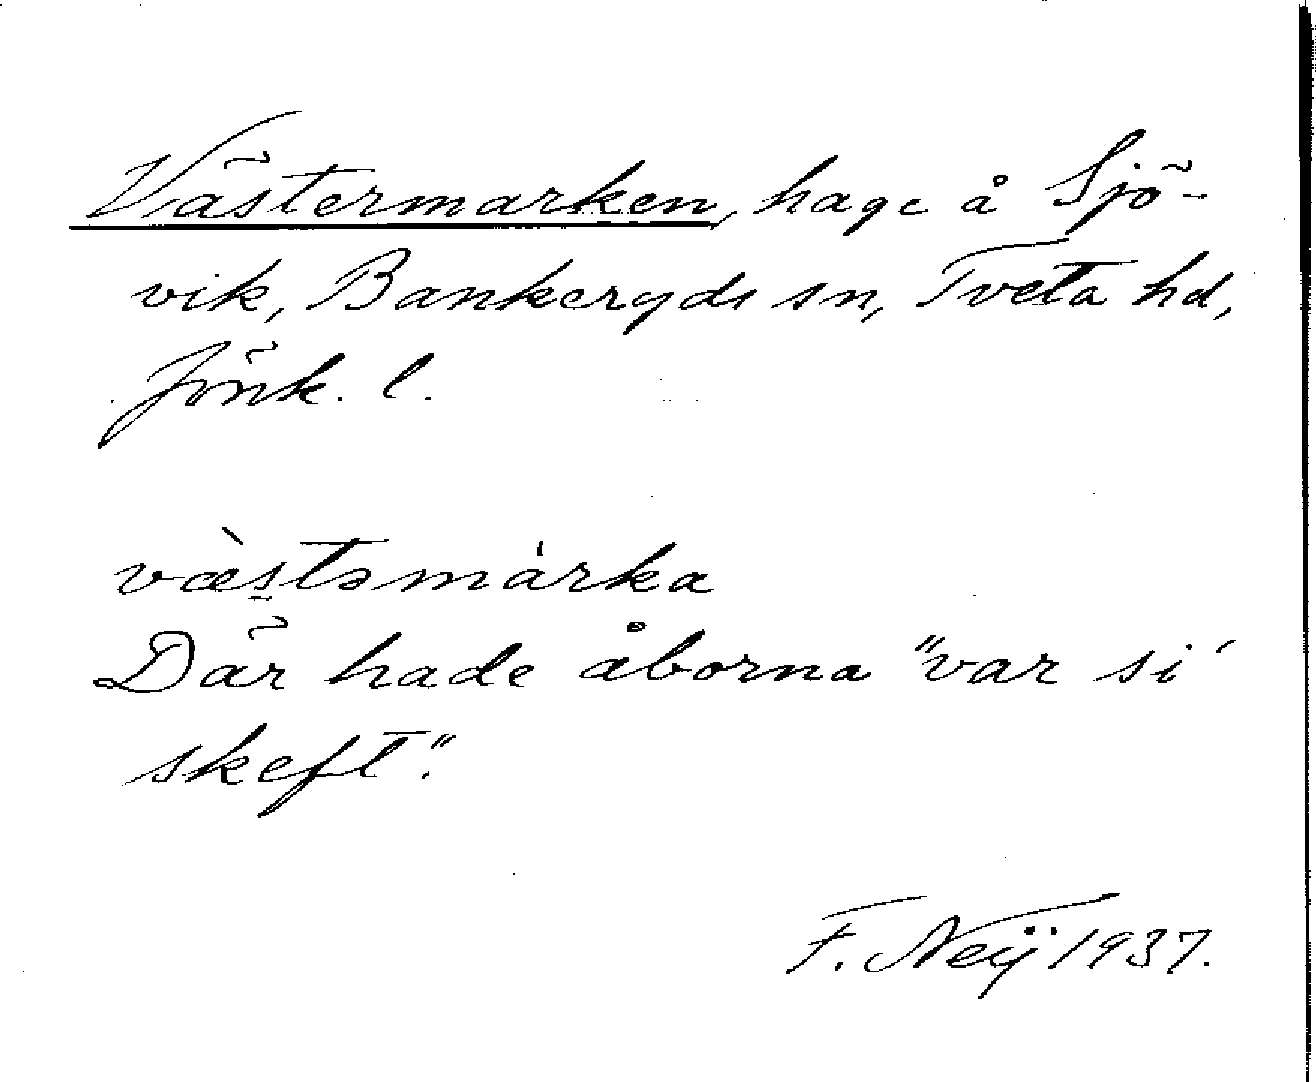 Västermarken, hage å Sjö-
vik, Bankeryds sn, Tveta hd,
Jönk. l.
væ̀s̱təmárka
Där hade åborna "var si'
skeft".
F. Neij 1937.